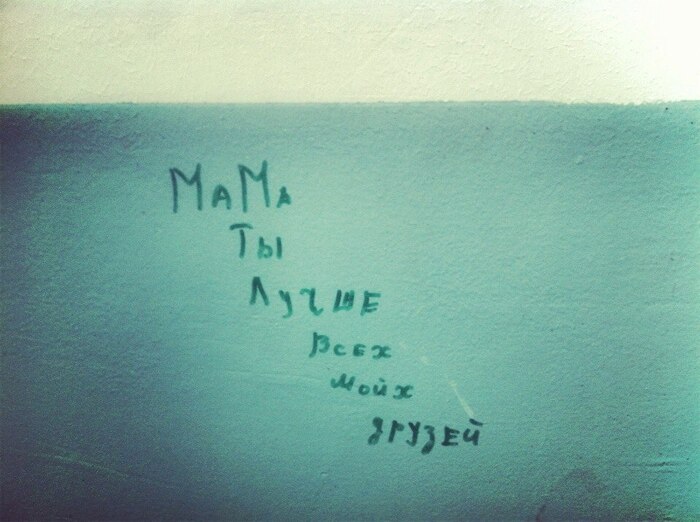 МаМа
Ты
Лучше
Всех
мойх
друзей